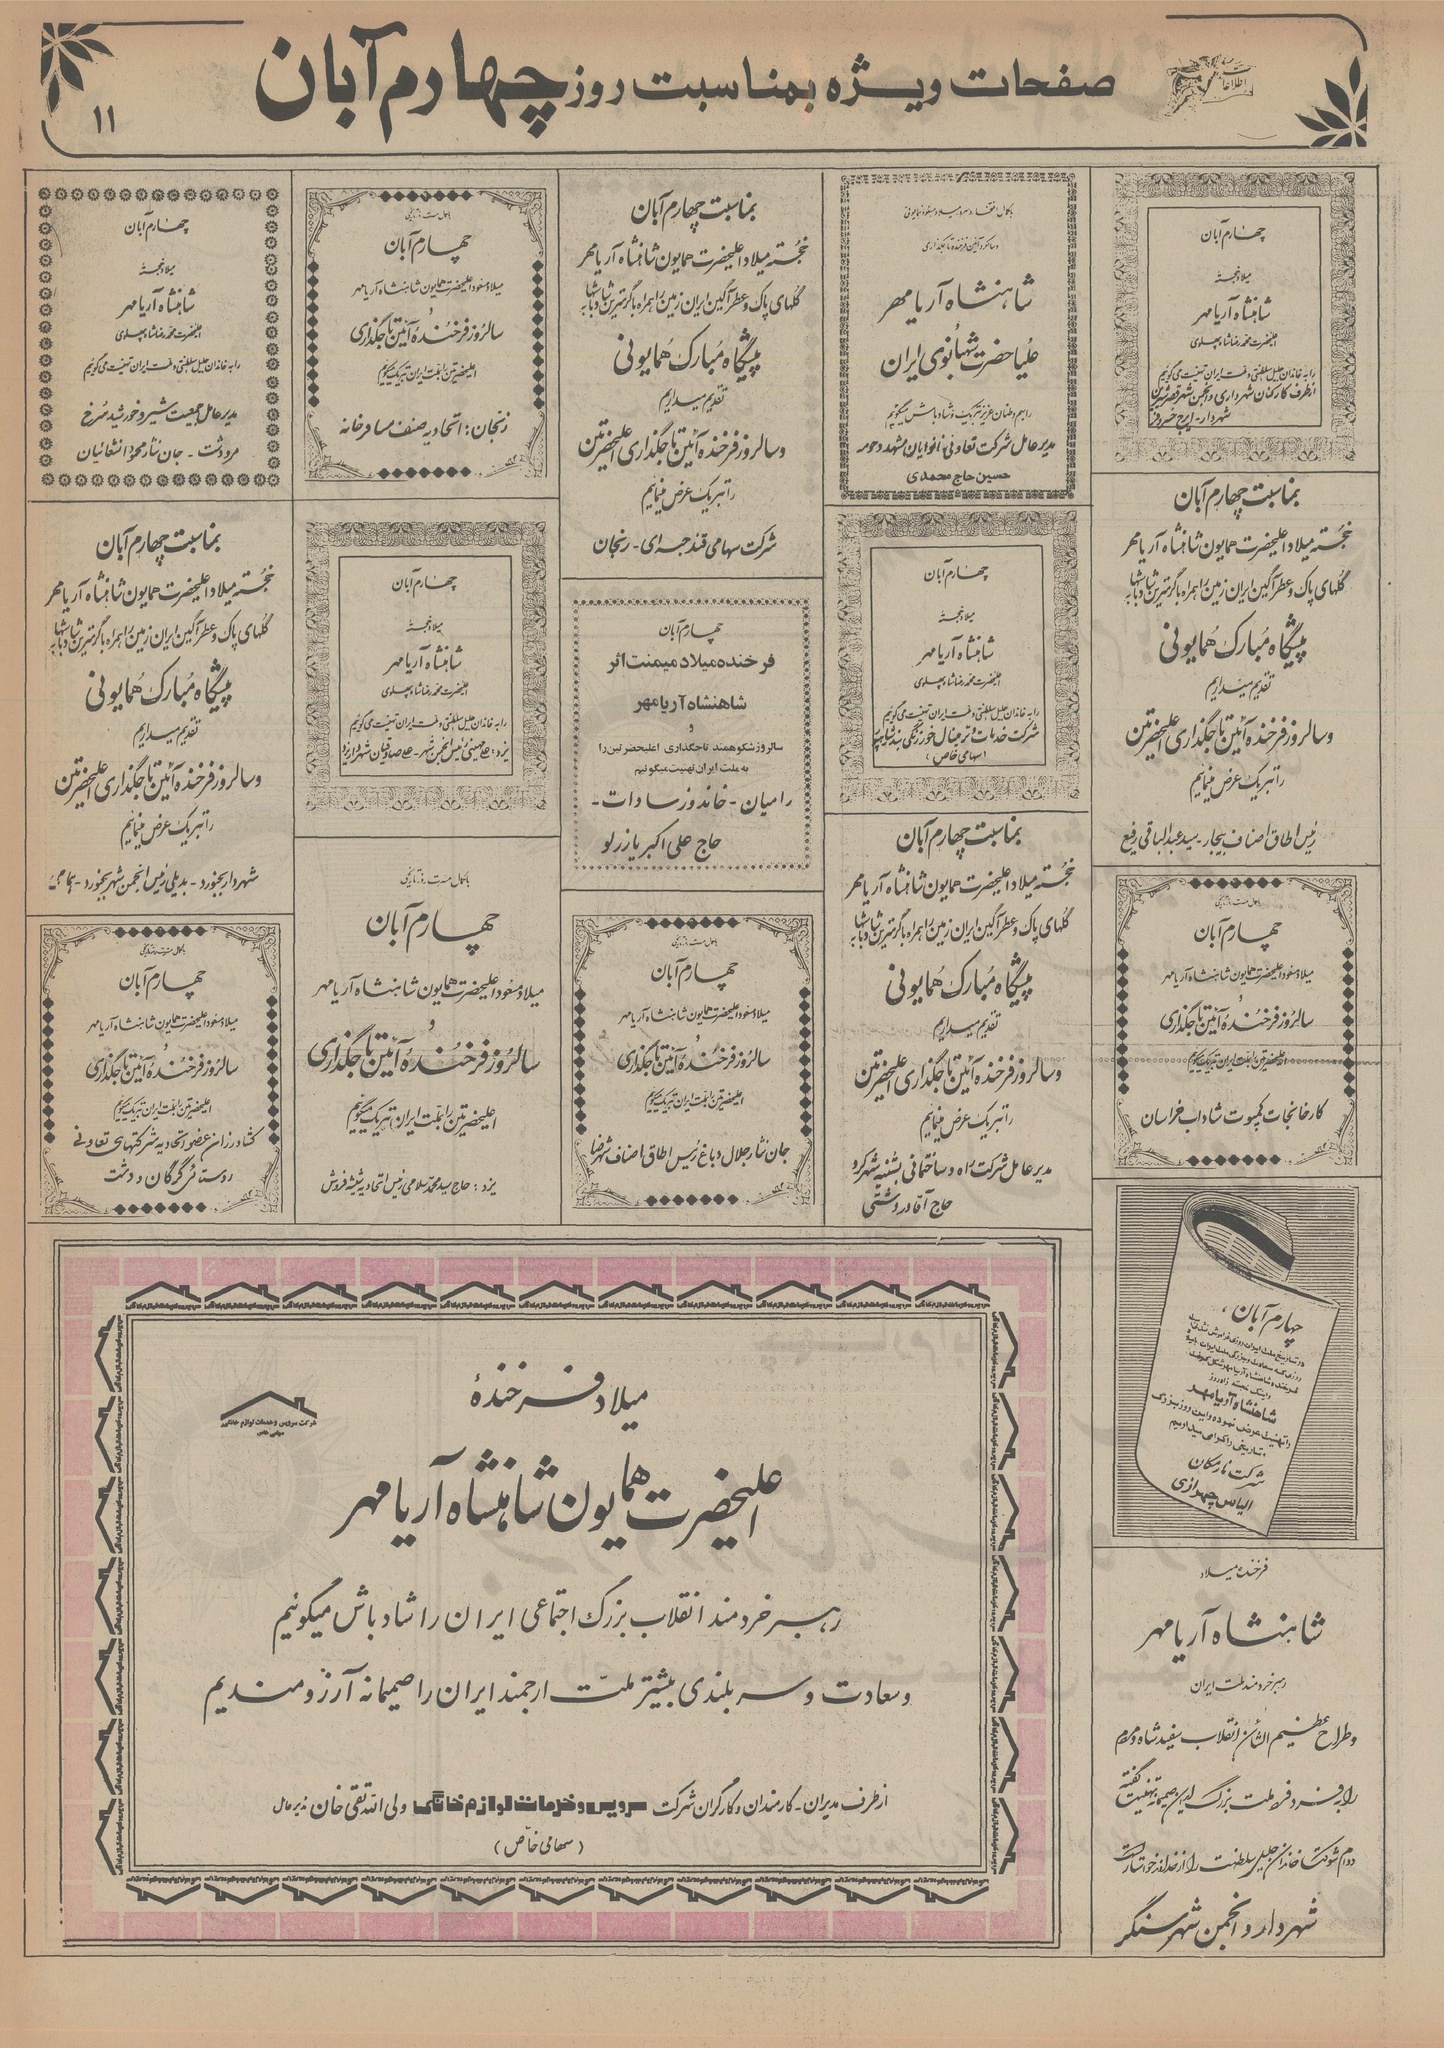 صفحات ویژه بمناسبت روز چهارم آبان
اطلاعات
۱۱
چهارم آبان
میلاد خجسته
شاهنشاه آریامهر
اعلیحضرت محمد رضا شاه پهلوی
را به خاندان جلیل سلطنتی و ملت ایران تهنیت می گوئیم
از طرف کارکنان شهرداری و انجمن شهر قصرشیرین
شهردار - ایرج خسروی
بمناسبت چهارم آبان
خجسته میلاد اعلیحضرت همایون شاهنشاه آریامهر
گلهای پاک و عطرآگین ایران زمین را همراه با گرمترین شادباشها به
پیشگاه مبارک همایونی
تقدیم میداریم
و سالروز فرخنده آئین تاجگذاری اعلیحضرتین
را تبریک عرض مینمایم
رئیس اطاق اصناف بیجار - سید عبدالباقی رفیع
چهارم آبان
میلاد مسعود اعلیحضرت همایون شاهنشاه آریامهر
و
سالروز فرخنده آئین تاجگذاری
اعلیحضرتین را بملت ایران تبریک میگوئیم
کارخانجات کمپوت شاداب خراسان
چهارم آبان،
شاهنشاه آریامهر
را تهنیت عرض نموده و این روز بزرگ
تاریخی را گرامی میداریم
شرکت نارمکان
الیاس چهرازی
فرخنده میلاد
شاهنشاه آریامهر
رهبر خردمند ملت ایران
و طراح عظیم الشأن انقلاب سفید شاه و مردم
را به فرد فرد ملت بزرگ ایران صمیمانه تهنیت گفته
دوام شوکت خاندان جلیل سلطنت را از خداوند خواستاریم
شهردار و انجمن شهر سنگر
شاهنشاه آریامهر
علیاحضرت شهبانوی ایران
را بهم وطنان عزیز تبریک و شادباش میگوئیم
مدیر عامل شرکت تعاونی نانوایان مشهد و حومه
حسین حاج محمدی
چهارم آبان
میلاد خجسته
شاهنشاه آریامهر
اعلیحضرت محمد رضا شاه پهلوی
را به خاندان جلیل سلطنتی و ملت ایران تهنیت می گوئیم
(سهامی خاص)
بمناسبت چهارم آبان
خجسته میلاد اعلیحضرت همایون شاهنشاه آریامهر
گلهای پاک و عطرآگین ایران زمین را همراه با گرمترین شادباشها به
پیشگاه مبارک همایونی
تقدیم میداریم
و سالروز فرخنده آئین تاجگذاری اعلیحضرتین
را تبریک عرض مینمایم
مدیر عامل شرکت راه و ساختمانی بشنه شهرکرد
حاج آقا دردشتی
بمناسبت چهارم آبان
خجسته میلاد اعلیحضرت همایون شاهنشاه آریامهر
گلهای پاک و عطرآگین ایران زمین را همراه با گرمترین شادباشها به
پیشگاه مبارک همایونی
تقدیم میداریم
و سالروز فرخنده آئین تاجگذاری اعلیحضرتین
را تبریک عرض مینمایم
شرکت سهامی قند جبه ای - زنجان
چهارم آبان
فرخنده میلاد میمنت اثر
شاهنشاه آریامهر
و
سالروز شکوهمند تاجگذاری اعلیحضرتین را
به ملت ایران تهنیت میگوئیم
رامیان - خاندوز سادات -
حاج علی اکبر یازرلو
چهارم آبان
میلاد مسعود اعلیحضرت همایون شاهنشاه آریامهر
و
سالروز فرخنده آئین تاجگذاری
اعلیحضرتین را بملت ایران تبریک میگوئیم
جان نثار جلال دباغ رئیس اطاق اصناف شهرضا
چهارم آبان
میلاد مسعود اعلیحضرت همایون شاهنشاه آریامهر
و
سالروز فرخنده آئین تاجگذاری
اعلیحضرتین را بملت ایران تبریک میگوئیم
زنجان: اتحادیه صنف مسافرخانه
چهارم آبان
میلاد خجسته
شاهنشاه آریامهر
اعلیحضرت محمد رضا شاه پهلوی
را به خاندان جلیل سلطنتی و ملت ایران تهنیت می گوئیم
چهارم آبان
میلاد مسعود اعلیحضرت همایون شاهنشاه آریامهر
و
سالروز فرخنده آئین تاجگذاری
اعلیحضرتین را بملت ایران تبریک میگوئیم
یزد: حاج سید محمد سلامی رئیس اتحادیه شیشه فروش
چهارم آبان
میلاد خجسته
شاهنشاه آریامهر
اعلیحضرت محمد رضا شاه پهلوی
را به خاندان جلیل سلطنتی و ملت ایران تهنیت می گوئیم
مدیر عامل جمعیت شیر و خورشید سرخ
مرودشت - جان نثار محمود انشائیان
بمناسبت چهارم آبان
خجسته میلاد اعلیحضرت همایون شاهنشاه آریامهر
گلهای پاک و عطرآگین ایران زمین را همراه با گرمترین شادباشها به
پیشگاه مبارک همایونی
تقدیم میداریم
و سالروز فرخنده آئین تاجگذاری اعلیحضرتین
را تبریک عرض مینمایم
شهردار بجنورد - بدیلی رئیس انجمن شهر بجنورد -
چهارم آبان
میلاد مسعود اعلیحضرت همایون شاهنشاه آریامهر
و
سالروز فرخنده آئین تاجگذاری
اعلیحضرتین را بملت ایران تبریک میگوئیم
کشاورزان عضو اتحادیه شرکتهای تعاونی
روستائی گرگان و دشت
شرکت سرویس و خدمات لوازم خانگی
سهامی خاص
میلاد فرخندهٔ
اعلیحضرت همایون شاهنشاه آریامهر
رهبر خردمند انقلاب بزرگ اجتماعی ایران را شادباش میگوئیم
و سعادت و سربلندی بیشتر ملت ارجمند ایران را صمیمانه آرزومندیم
از طرف مدیران - کارمندان و کارگران شرکت سرویس و خدمات لوازم خانگی ولی الله تقی خان مدیر عامل
(سهامی خاص)